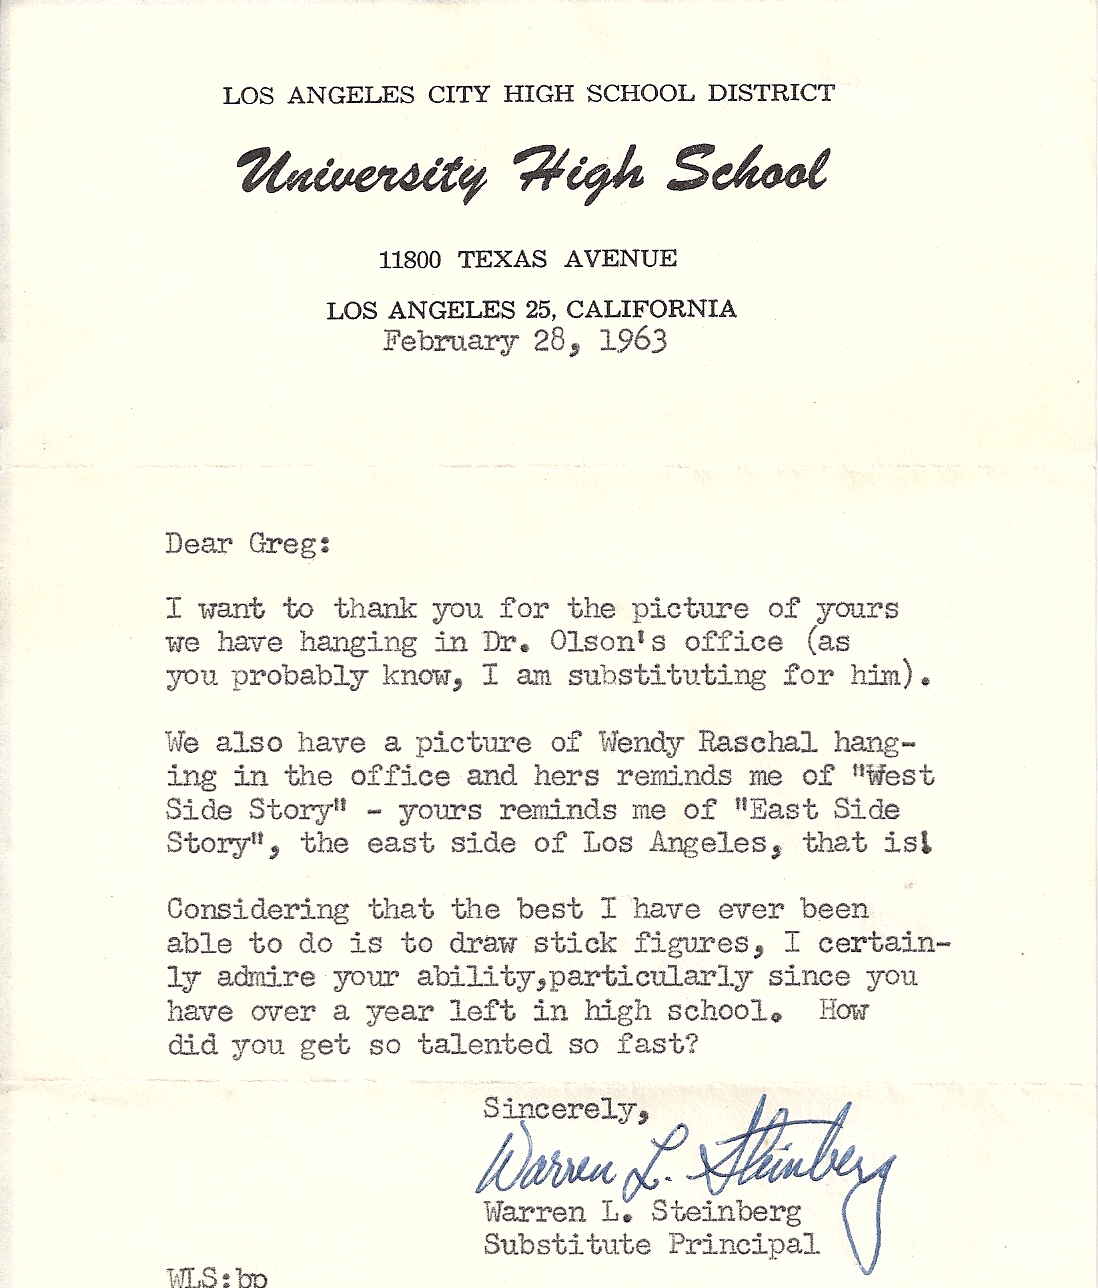 LOS ANGELES CITY HIGH SCHOOL DISTRICT
University High School
11800 TEXAS AVENUE
LOS ANGELES 25, CALIFORNIA
February 28, 1963
Dear Greg:
I want to thank you for the picture of yours
we have hanging in Dr. Olson's office (as
you probably know, I am substituting for him).
We also have a picture of Wendy Raschal hang-
ing in the office and hers reminds me of "West
Side Story" - yours reminds me of "East Side
Story", the east side of Los Angeles, that is!
Considering that the best I have ever been
able to do is to draw stick figures, I certain-
ly admire your ability,particularly since you
have over a year left in high school.  How
did you get so talented so fast?
Sincerely,
Warren L. Steinberg
Warren L. Steinberg
Substitute Principal
WLS:bp